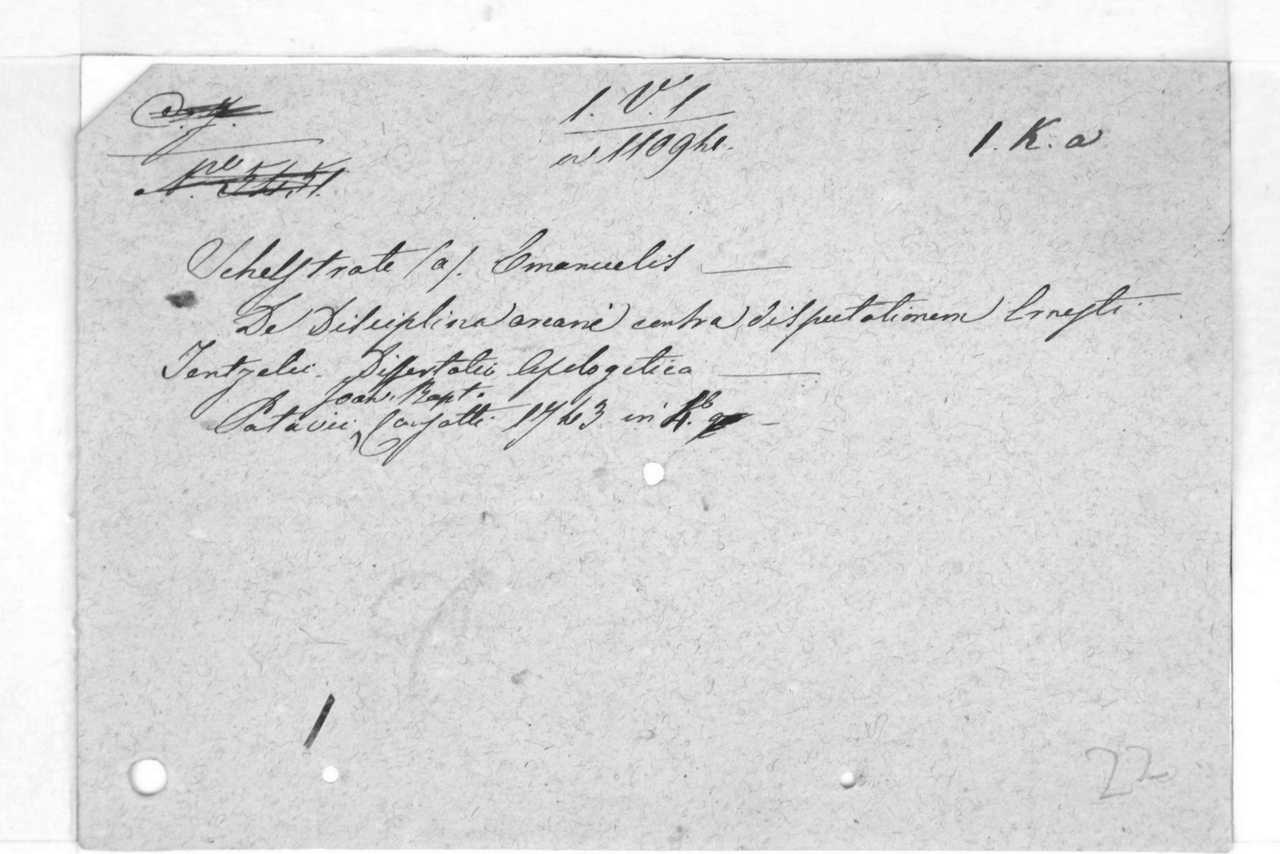 1. V. 1
1. K. a
Schelstrate (a). Emanuelis —
De Disciplina arcani contra disputationem Ernesti
Tentzelii. Dissertatio Apologetica —
Joan. Bapt.
Patavii, Conzatti 1743 in 4.
22